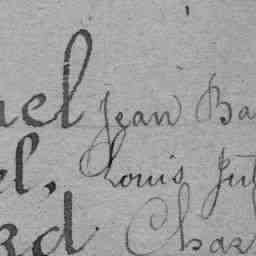 uel Jean Ba
el, Louis Jul
rd Char